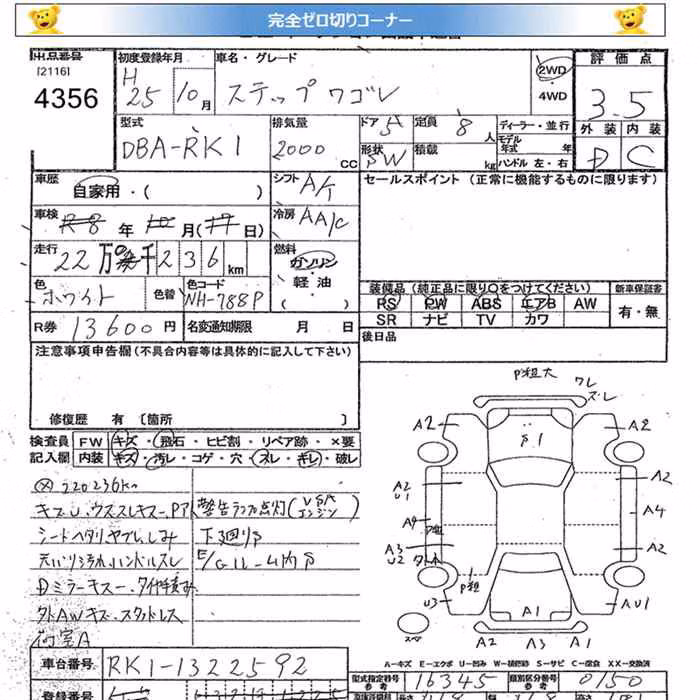 完全ゼロ切りコーナー
出品番号 初度登録年月 車名・グレード 評価点
[2116] H 25 10月 ステップワゴン 2WD ・ 4WD 3.5
4356
型式 排気量 ドア 定員 ディーラー・並行 外装 内装
DBA-RK1 2000 CC 5 8人 モデル年式 年 D C
形状 SW 積載 kg ハンドル 左・右
車歴 自家用・( ) シフト A/T セールスポイント (正常に機能するものに限ります)
車検 R8年10月(17日) 冷房 AA/C
走行 22万 千236km 燃料 ガソリン・軽油 ( )
色 ホワイト 色替 色コード NH-788P
装備品 (純正品に限り○をつけてください) 新車保証書
PS PW ABS エアB AW 有・無
SR ナビ TV カワ
R券 13600円 名変通知期限 月 日
後日品
注意事項申告欄(不具合内容等は具体的に記入して下さい)
修復歴 有 〔箇所 〕
検査員 FW キズ・飛石・ヒビ割・リペア跡・×要
記入欄 内装 キズ・汚レ・コゲ・穴・スレ・キレ・破レ
220236km
キズU、ウススレキズー、Pアト 警告ランプ点灯(VSA エンジン)
シートヘタリヤブレ、しみ 下廻りS
天いり汚れハンドルスレ E/Gルーム内S
Dミラーキズー、タイヤ積み
外AWキズ、スタッドレス
荷室A
P粗大 ワレ ズレ
A2 S1 A2
A2 U1 A2
A9 A4
A3 U2 A2
P粗
U3 A1 AU1
A2 A3 A1
A-キズ E-エクボ U-凹み W-補修跡 S-サビ C-腐食 XX-交換済
車台番号 RK1-1322592
型式指定番号 参考 16345 類別区分番号 参考 0150
登録番号